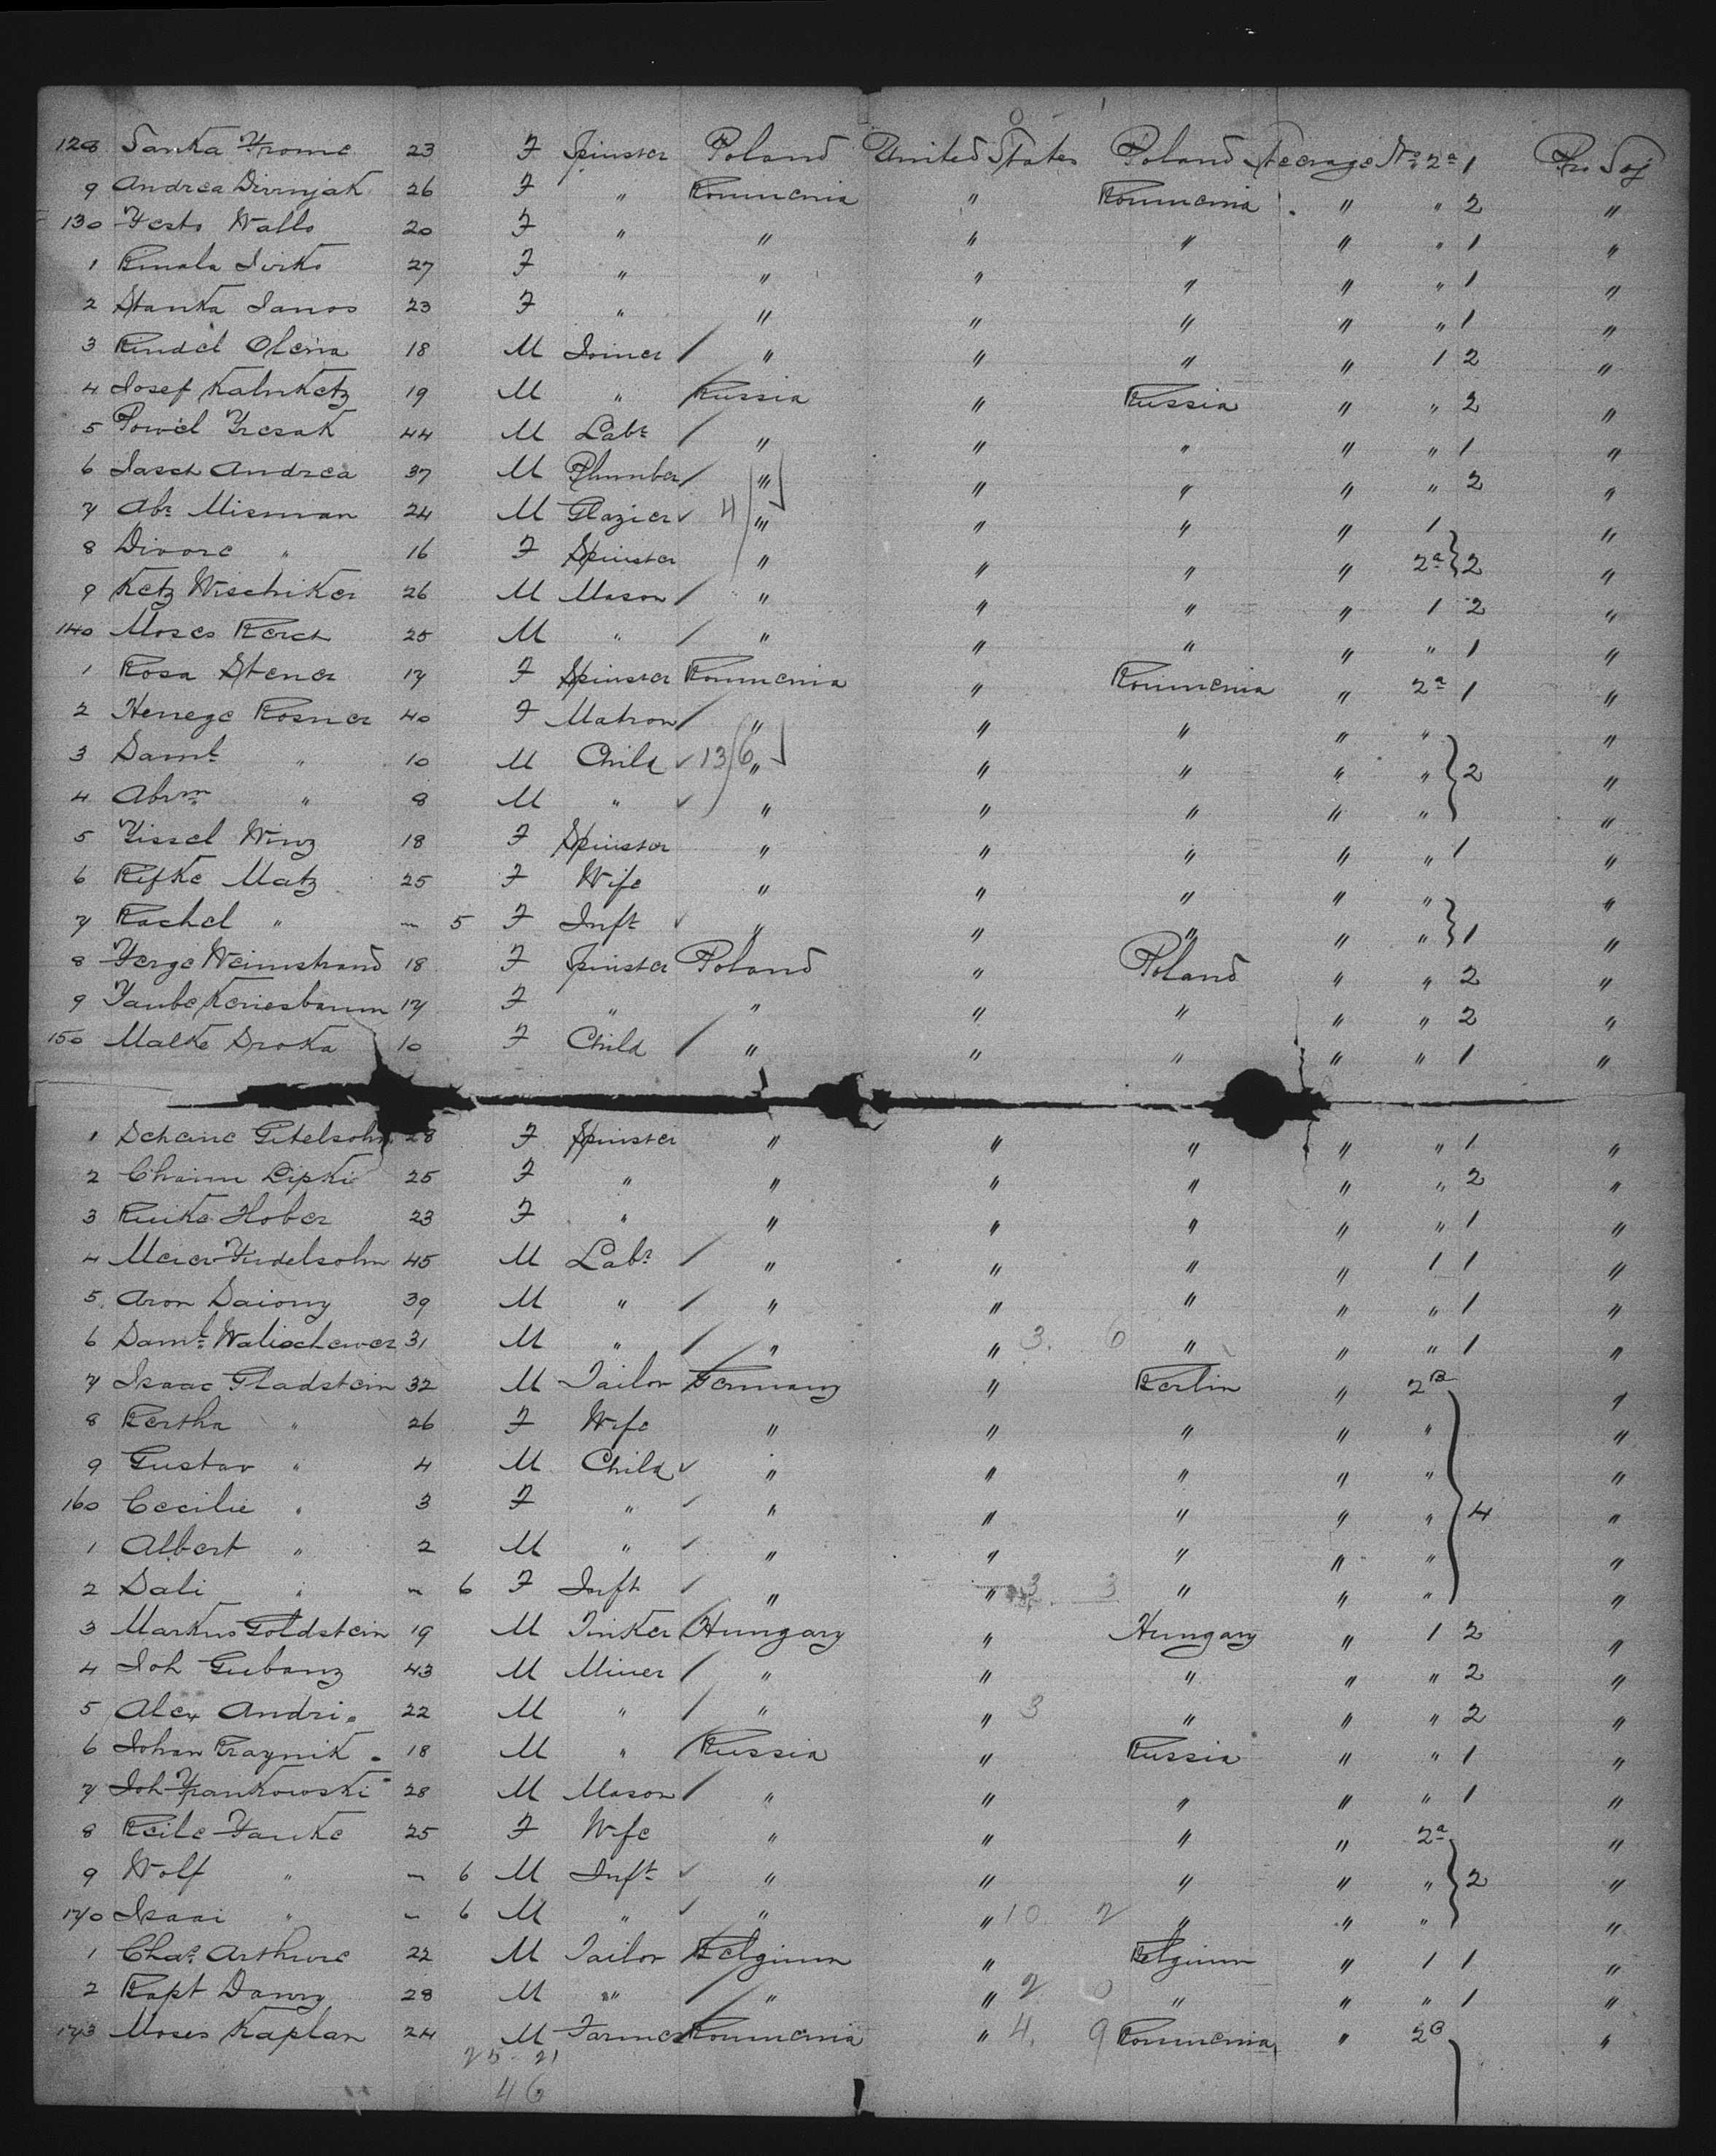 128 Sanka Frome 23 F Spinster Poland United States Poland Steerage No. 2a 1 Pr Soj
9 Andrea Dirrnjak 26 F " Roumenia " Roumenia " " 2 "
130 Walls 20 F " " " " " " 1 "
1 27 F " " " " " " 1 "
2 Stanka Janos 23 F " " " " " " 1 "
3 Rindel Olenia 18 M Joiner / " " " " 1 2 "
4 Josef Kalnketz 19 M " Russia " Russia " " 2 "
5 Powel 44 M Labr / " " " " " 1 "
6 Jasch Andrea 37 M Plumber / " " " " " 2 "
7 Abr Misman 24 M Glazier ✓ 4 " " " " 1 "
8 Divore " 16 F Spinster " " " " 2a 2 "
9 Ketz Wischiker 26 M Mason / " " " " 1 2 "
140 Moses Kerch 25 M " / " " " " " 1 "
1 Rosa Stener 17 F Spinster Roumenia " Roumenia " 2a 1 "
2 Henege Rosner 40 F Matron / " " " " " "
3 Saml " 10 M Child ✓ 13/6 " " " " " 2 "
4 Abrm " 8 M " ✓ " " " " " "
5 Zissel Winz 18 F Spinster " " " " " 1 "
6 Rifke Matz 25 F Wife " " " " " "
7 Rachel " – 5 F Inft ✓ " " " " " 1 "
8 Ferge Weinstrand 18 F Spinster Poland " Poland " " 2 "
9 Taube Keniesbaum 17 F " " " " " " 2 "
150 Malke Sroka 10 F Child / " " " " " 1 "
1 Scheine Gitelsohn 28 F Spinster " " " " " 1 "
2 Chaim Lipki 25 F " " " " " " 2 "
3 Hober 23 F " " " " " " 1 "
4 Meier Fridelsohn 45 M Labr / " " " " 1 1 "
5 Aron 39 M " / " " " " " 1 "
6 Saml Walischewer 31 M " / " " 3. 6 " " " 1 "
7 Isaac Gladstein 32 M Tailor / Germany " Berlin " 2B "
8 Bertha " 26 F Wife " " " " " "
9 Gustav " 4 M Child ✓ " " " " " "
160 Cecilie " 3 F " ✓ " " " " " 4 "
1 Albert " 2 M " ✓ " " " " " "
2 Sali " – 6 F Inft ✓ " " 3 3 " " " "
3 Markus Goldstein 19 M Tinker / Hungary " Hungary " 1 2 "
4 Joh Gubanz 43 M Miner / " " " " " 2 "
5 Alex Andri 22 M " / " " 3 " " " 2 "
6 Johan Kraynik 18 M " / Russia " Russia " " 1 "
7 Joh Frankowski 28 M Mason / " " " " " 1 "
8 Reile Fanke 25 F Wife " " " " 2a "
9 Wolf " – 6 M Inft ✓ " " " " " 2 "
170 Isaai " – 6 M " ✓ " " 10. 2 " " " "
1 Chas Arthure 22 M Tailor / Belgium " Belgium " 1 1 "
2 Danny 28 M " / " " 2 0 " " " 1 "
173 Moses Kaplan 24 M Farmer / Roumenia " 4. 9 Roumenia " 2B "
25 - 21
46